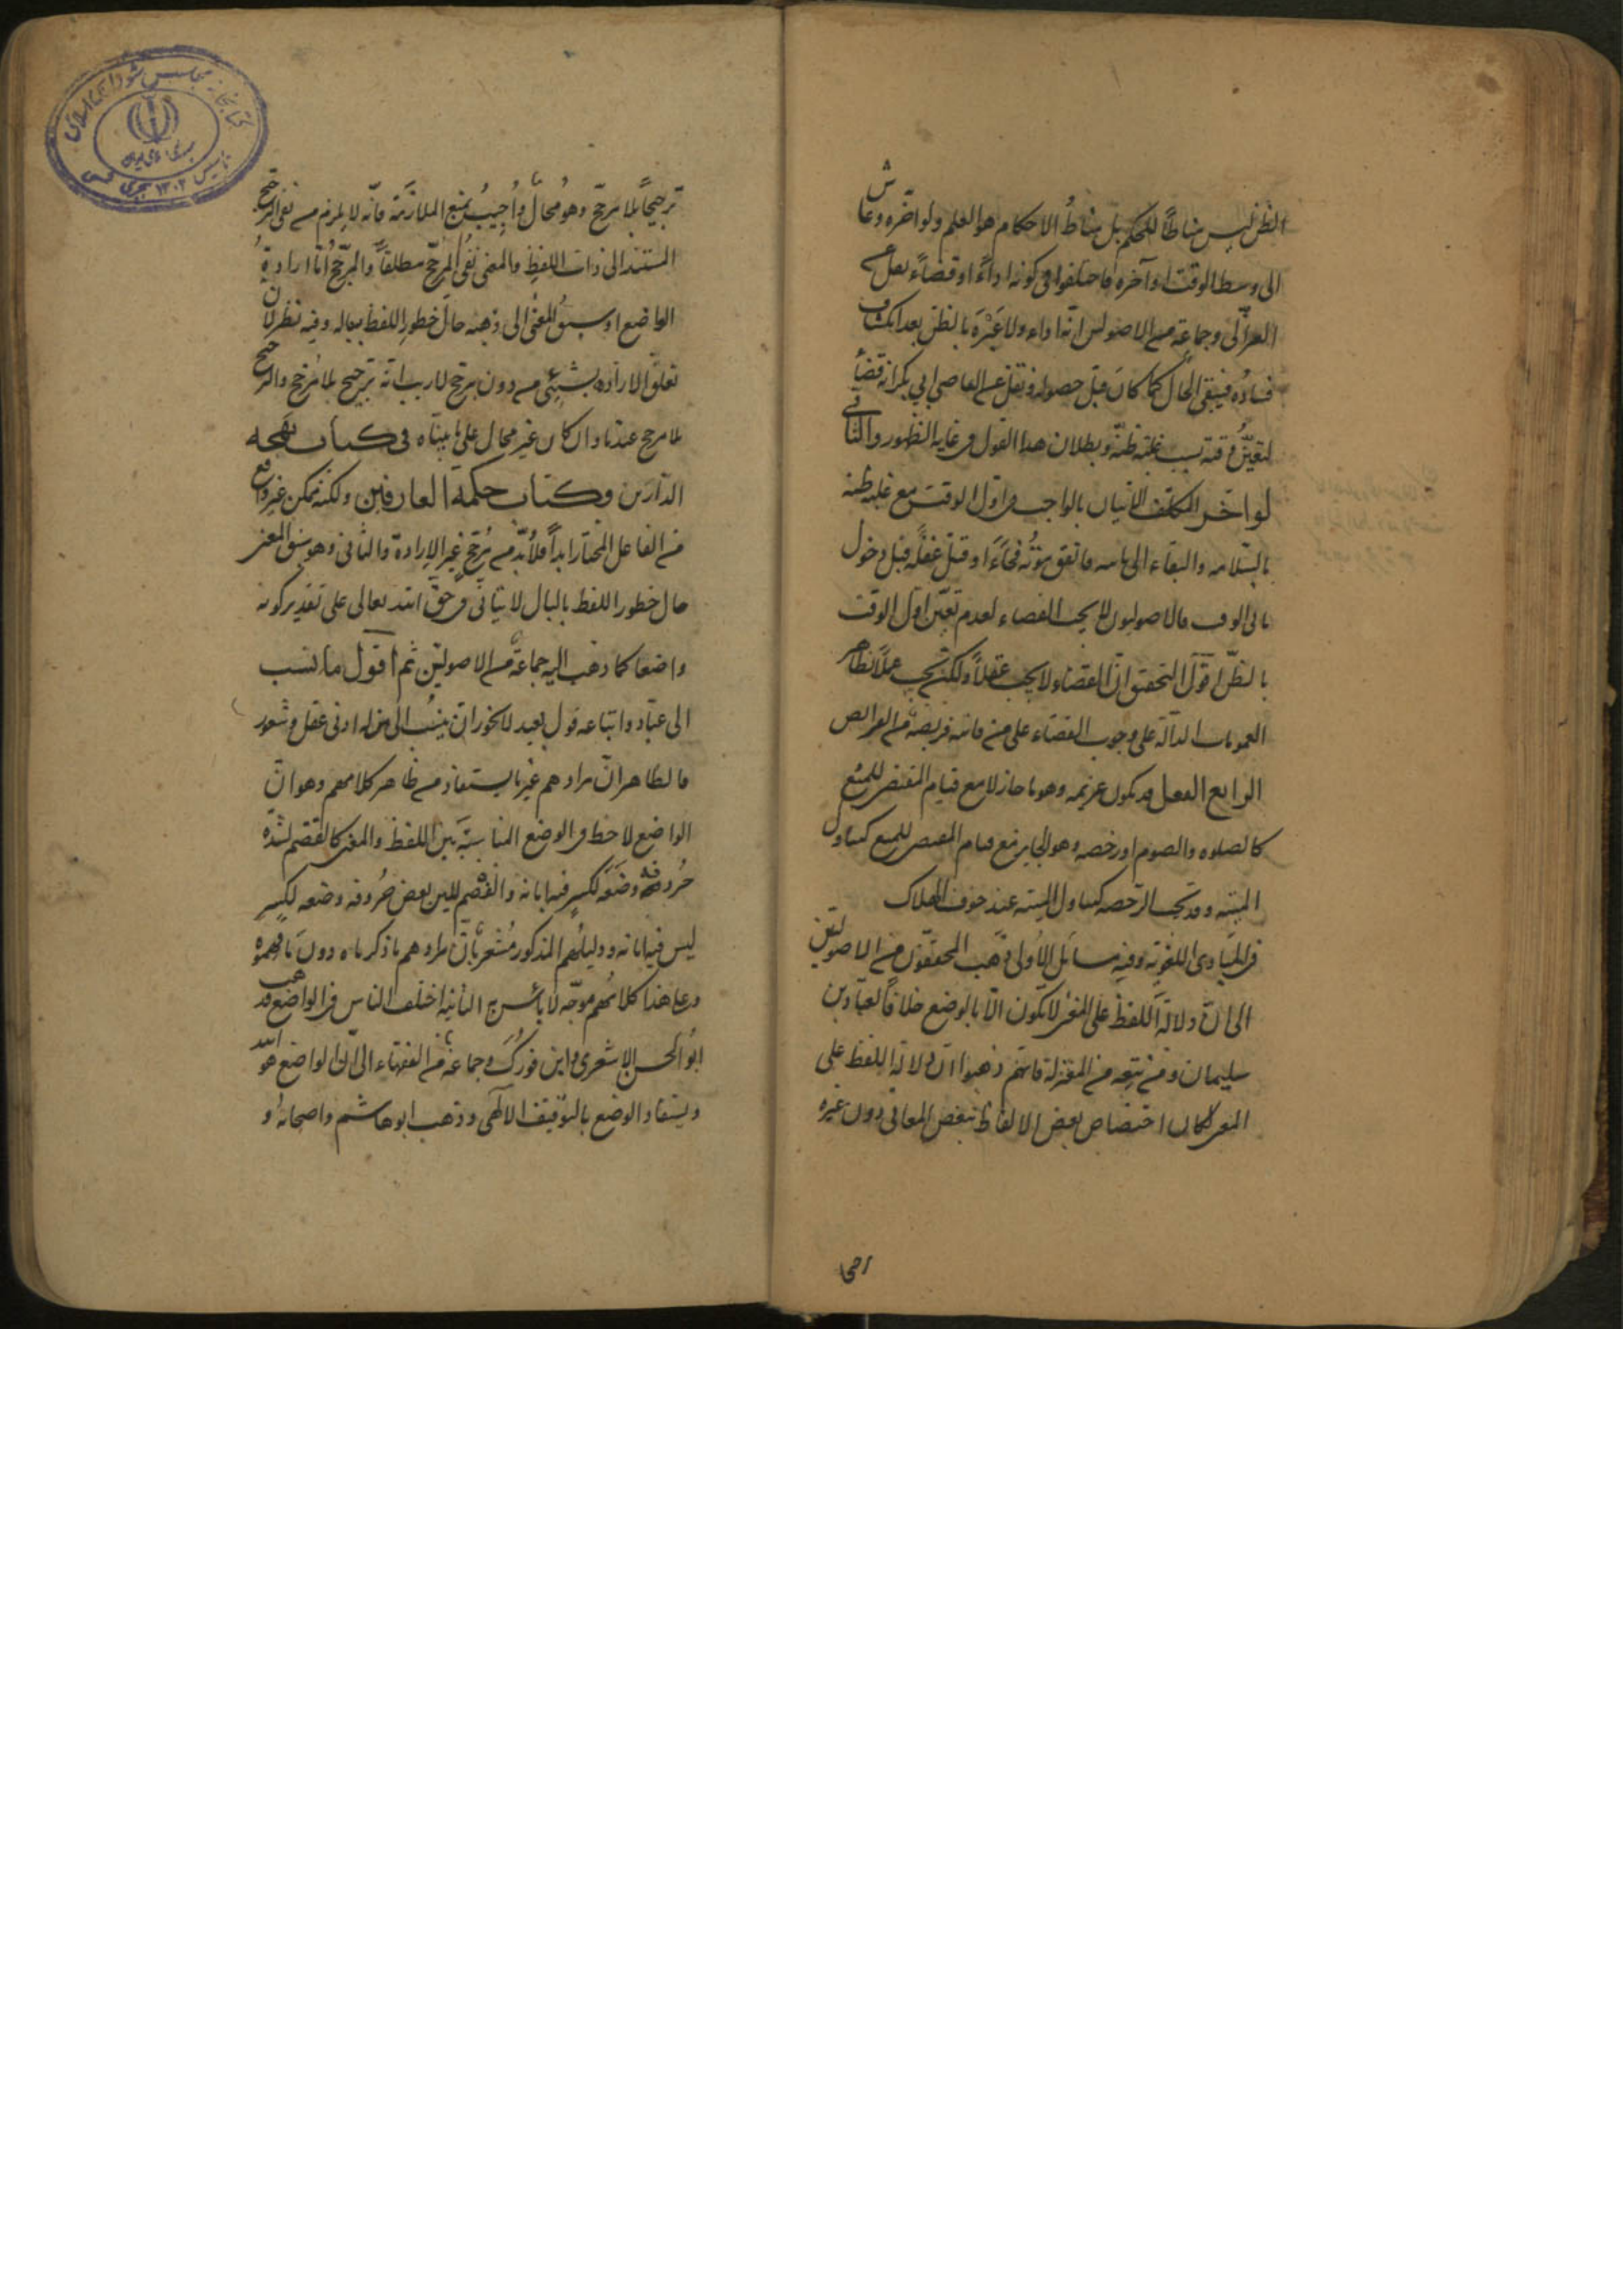 الظن ليس مناطاً للحكم بل مناطُ الاحكام هو العلم ولو اخّره وعاش
الى وسط الوقت او آخره فاختلفوا فى كونه اداءً او قضاءً نقل عن
الغزالى وجماعةٍ من الاصوليين انّه اداء ولا عَبْرَةَ بالظن بعد انكشاف
فساده فيبقى الحال كما كان قبل حصوله ونقل عن القاضى ابي بكر انه قضاءٌ
لتعيّن وقته بسبب غلبة ظنّه وبطلان هذا القول فى غاية الظهور والثانى
لو اخّر المكلّف الاتيان بالواجب فى اوّل الوقت مع غلبة ظنه
بالسّلامة والبقاء الى فاتفق موتُه فجاءَةً او قتل غفلةً قبل دخول
الوقت فالاصوليون لا يجب القضاء لعدم تعيّن اوّل الوقت
بالظنّ اقول التحقيق انّ القضاء لا يجب عقلاً ولكنّه يجب عملاً بظاهر
العمومات الدالّة على وجوب القضاء على من فاتته فريضة من الفرايض
الرابع الفعل قد يكون عزيمه وهو ما جاز لا مع قيام المقتضى للمنع
كالصلوه والصوم او رخصه وهو الجايز مع قيام المقتضى للمنع كتناول
الميته وقد تجب الرّخصه كتناول الميته عند خوف الهلاك
فى المبادى اللغويّة وفيه مسائل الاُولى ذهب المحقّقون من الاصوليّين
الى انّ دلالة اللفظ على المعنى لا تكون الّا بالوضع خلافاً لعبّاد بن
سليمان ومن تبعه من المعتزلة فانّهم ذهبوا انّ دلالة اللفظ على
المعنى لكان اختصاص بعض الالفاظ ببعض المعانى دون غيره
ترجيحاً بلا مرجّح وهو مُحالٌ واُجيبُ بمنع الملازَمة فانّه لا يلزم من نفى المرجّح
المستند الى ذات اللفظ والمعنى نفى المرجّح مطلقاً والمرجّحُ امّا ارادةُ
الواضع او سبقُ المعنى الى ذهنه حالَ خطورِ اللفظ بباله وفيه نظر لانّ
تعلّق الاراده بشيئٍ من دون مرجّح لا ريب انّه ترجيح بلا مُرجّح والترجيح
بلا مرجح عندنا وان كان غير محال على ما بيّناه فى كتاب بهجة
الدّارين وكتاب حكمة العارفين ولكنّه ممكن غير واقع
من الفاعل المختار ابداً فلا بدّ من مُرجّحٍ غير الارادة والثانى وهو سبق المعنى
حال خطور اللفظ بالبال لا يتأتّى فى حقّ اللّه تعالى على تقدير كونه
واضعا كما ذهب اليه جماعة من الاصوليّين ثم اقول ما نسب
الى عبّاد واتباعه قول بعيد لا يجوز ان ينسب الى من له ادنى عقل وشعور
فالظاهر انّ مرادهم غير ما يستفاد من ظاهر كلامهم وهو انّ
الواضع لاحظ فى الوضع المناسبَة بين اللفظ والمعنى كالقصم لشدّة
حُروفه وضَعَه لكسرٍ فيه ابانه والفَصْم للين بعض حُروفه وضعه لكسرٍ
ليس فيه ابانه ودليلُهم المذكور مُشعرٌ بانّ مرادهم ما ذكرناه دونَ ما فهموه
وعلى هذا كلامُهم موجّه لا بأس به الثانية اختلف الناس فى الواضع فذهب
ابُو الحسن الاشعرى وابن فورك وجماعة من الفقهاء الى انّ الواضع هو اللّه
ويستفاد الوضع بالتوقيف الالٓهى وذهب ابو هاشم واصحابهُ و